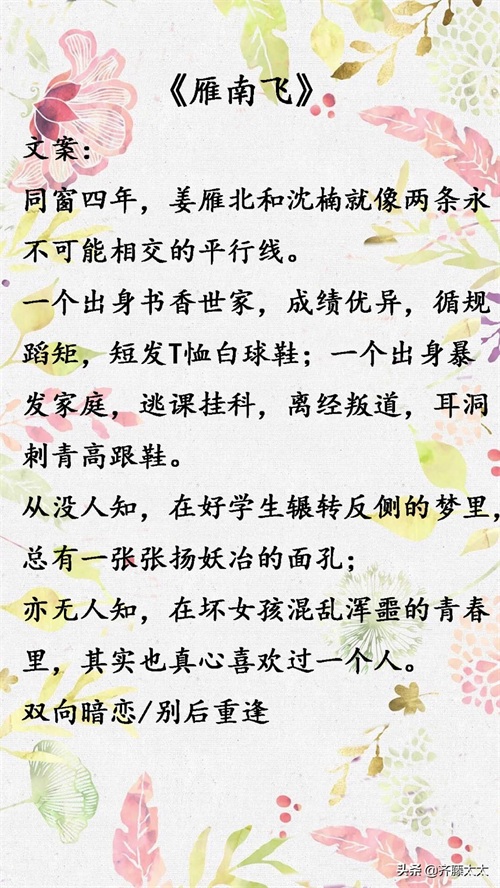 《雁南飞》
文案：
同窗四年，姜雁北和沈楠就像两条永
不可能相交的平行线。
一个出身书香世家，成绩优异，循规
蹈矩，短发T恤白球鞋；一个出身暴
发家庭，逃课挂科，离经叛道，耳洞
刺青高跟鞋。
从没人知，在好学生辗转反侧的梦里，
总有一张张扬妖冶的面孔；
亦无人知，在坏女孩混乱浑噩的青春
里，其实也真心喜欢过一个人。
双向暗恋/别后重逢
头条 @齐藤太太